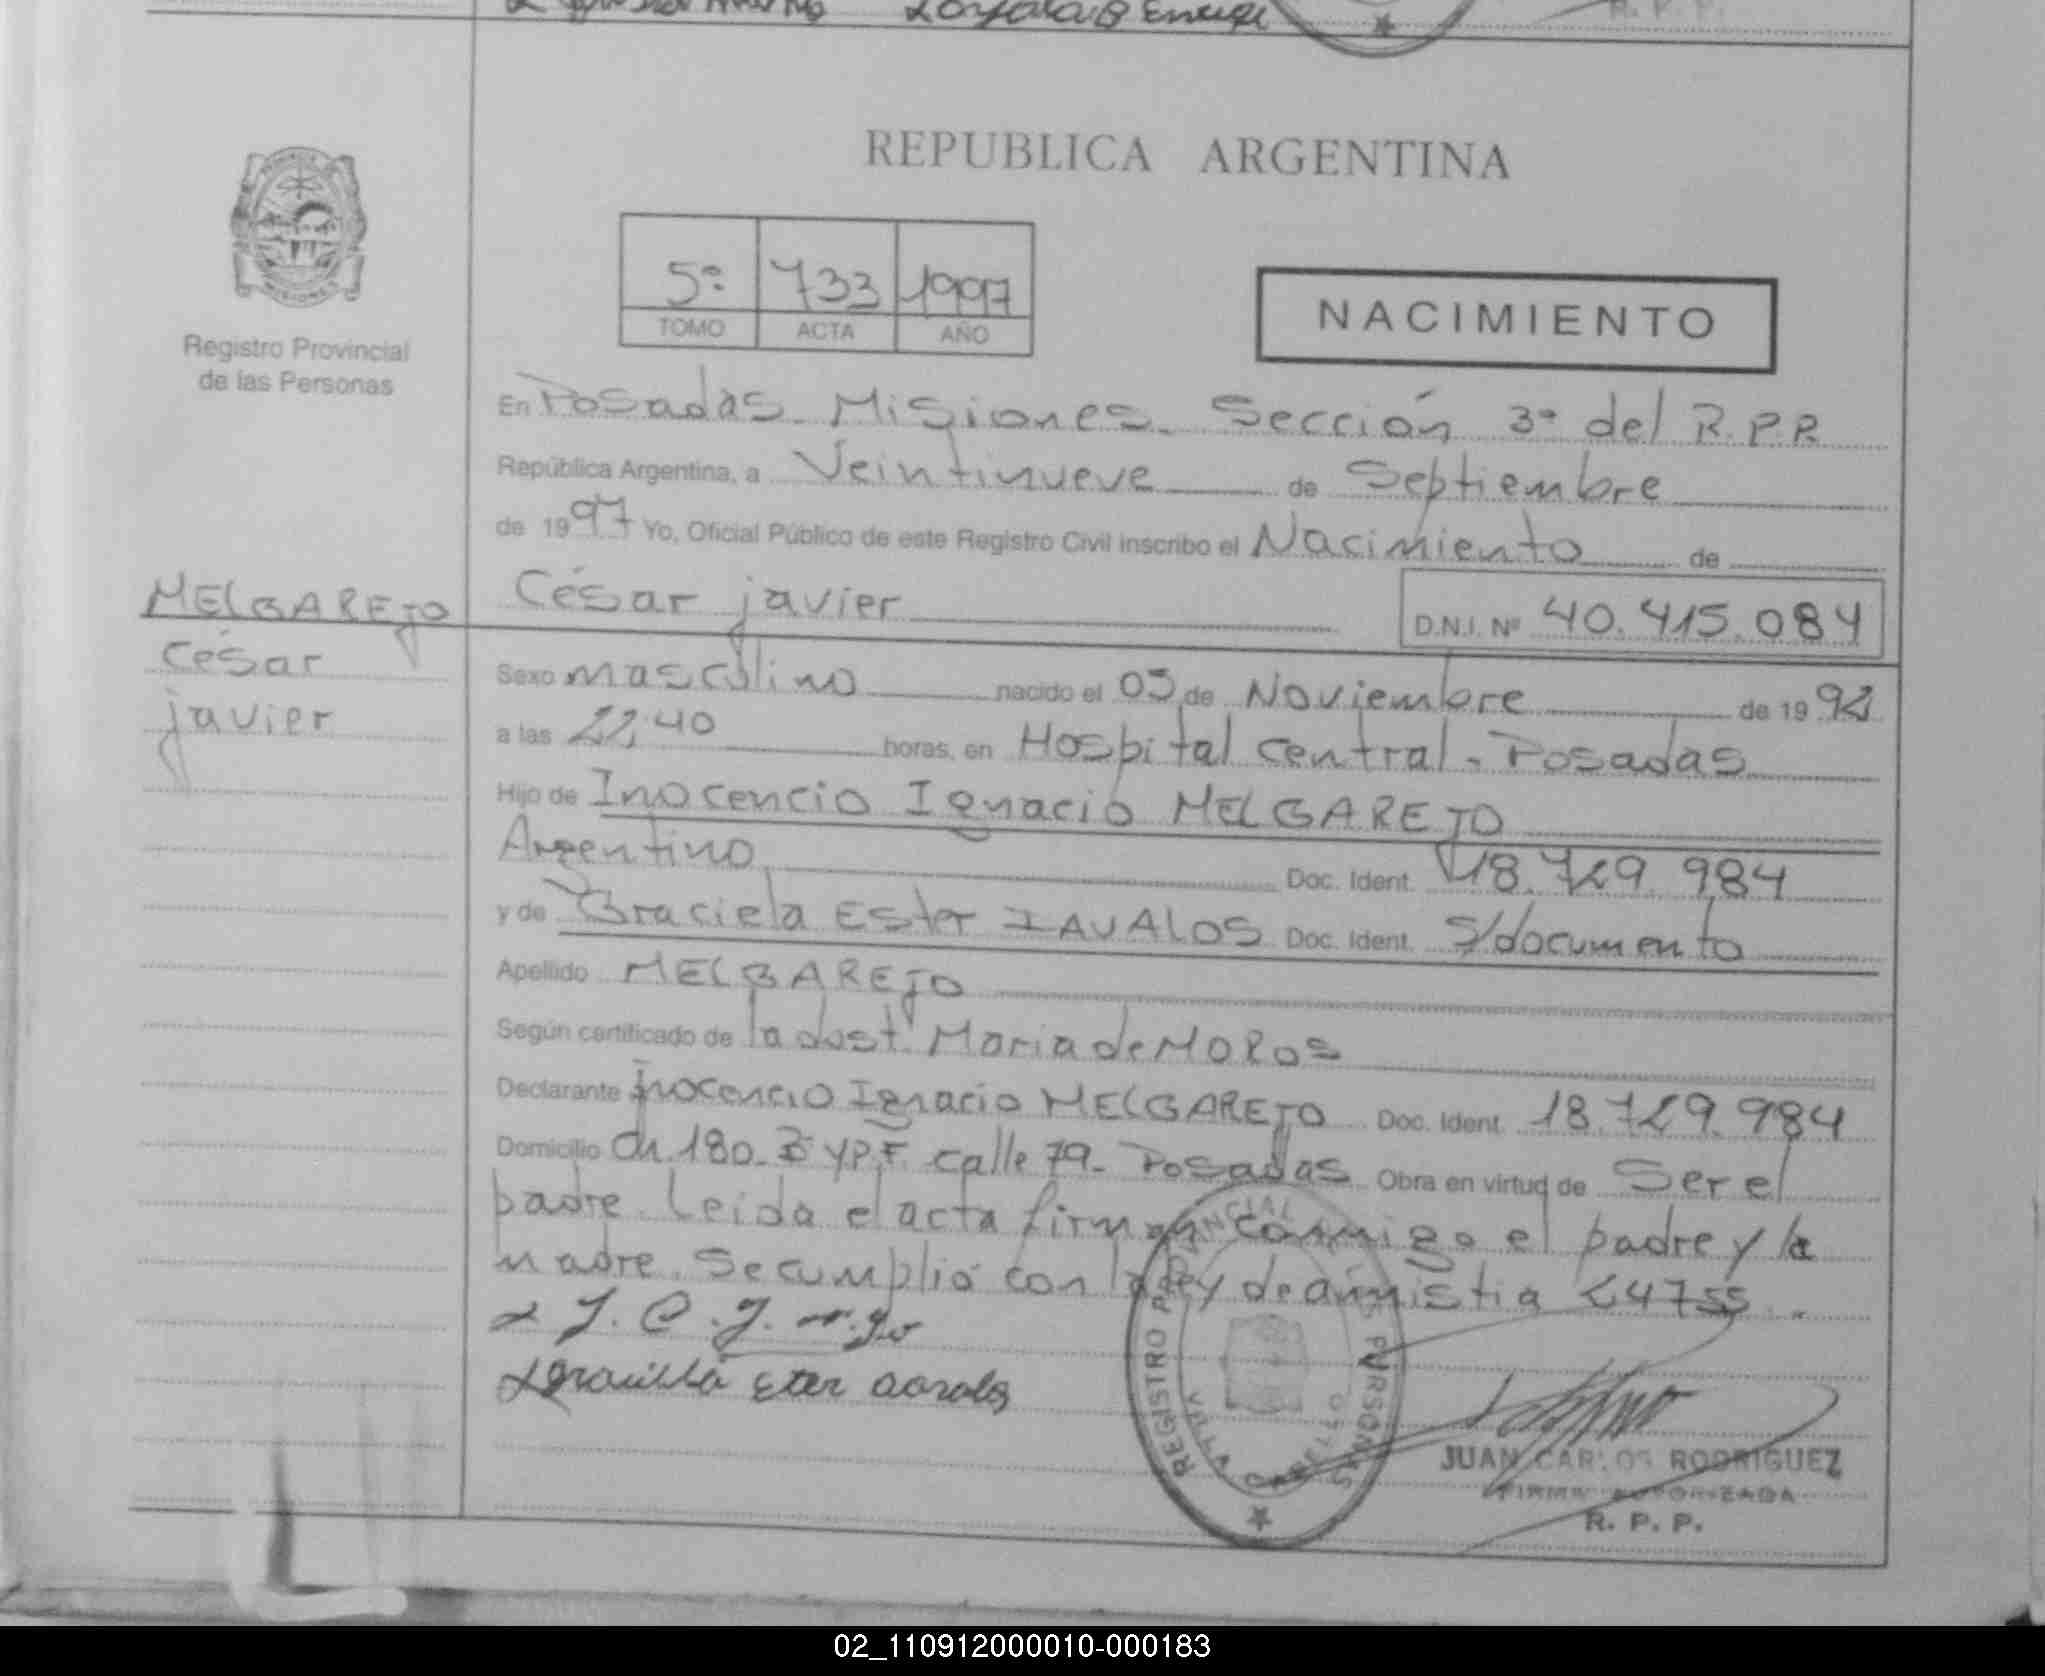 REPUBLICA ARGENTINA
5º 733 1997
TOMO ACTA AÑO
NACIMIENTO
MISIONES
Registro Provincial
de las Personas
En Posadas - Misiones - Sección 3º del R.P.P.
República Argentina, a Veintinueve de Septiembre
de 1997 Yo, Oficial Público de este Registro Civil inscribo el Nacimiento de
MELGAREJO César javier D.N.I. Nº 40.415.084
César
javier
Sexo masculino nacido el 05 de Noviembre de 19
a las 22,40 horas, en Hospital Central - Posadas
Hijo de Inocencio Ignacio MELGAREJO
Argentino Doc. Ident. 18.729.984
y de Graciela Ester ZAVALOS Doc. Ident. S/documento
Apellido MELGAREJO
Según certificado de la obst. Maria de MOROS
Declarante Inocencio Ignacio MELGAREJO Doc. Ident. 18.729.984
Domicilio Ch 180 - Bº YPF. calle 79 - Posadas Obra en virtud de Ser el
padre. Leida el acta firman conmigo el padre y la
madre. Se cumplió con la ley de amnistia 24755.
REGISTRO PROVINCIAL DE LAS PERSONAS
JUAN CARLOS RODRIGUEZ
FIRMA AUTORIZADA
R. P. P.
02_110912000010-000183